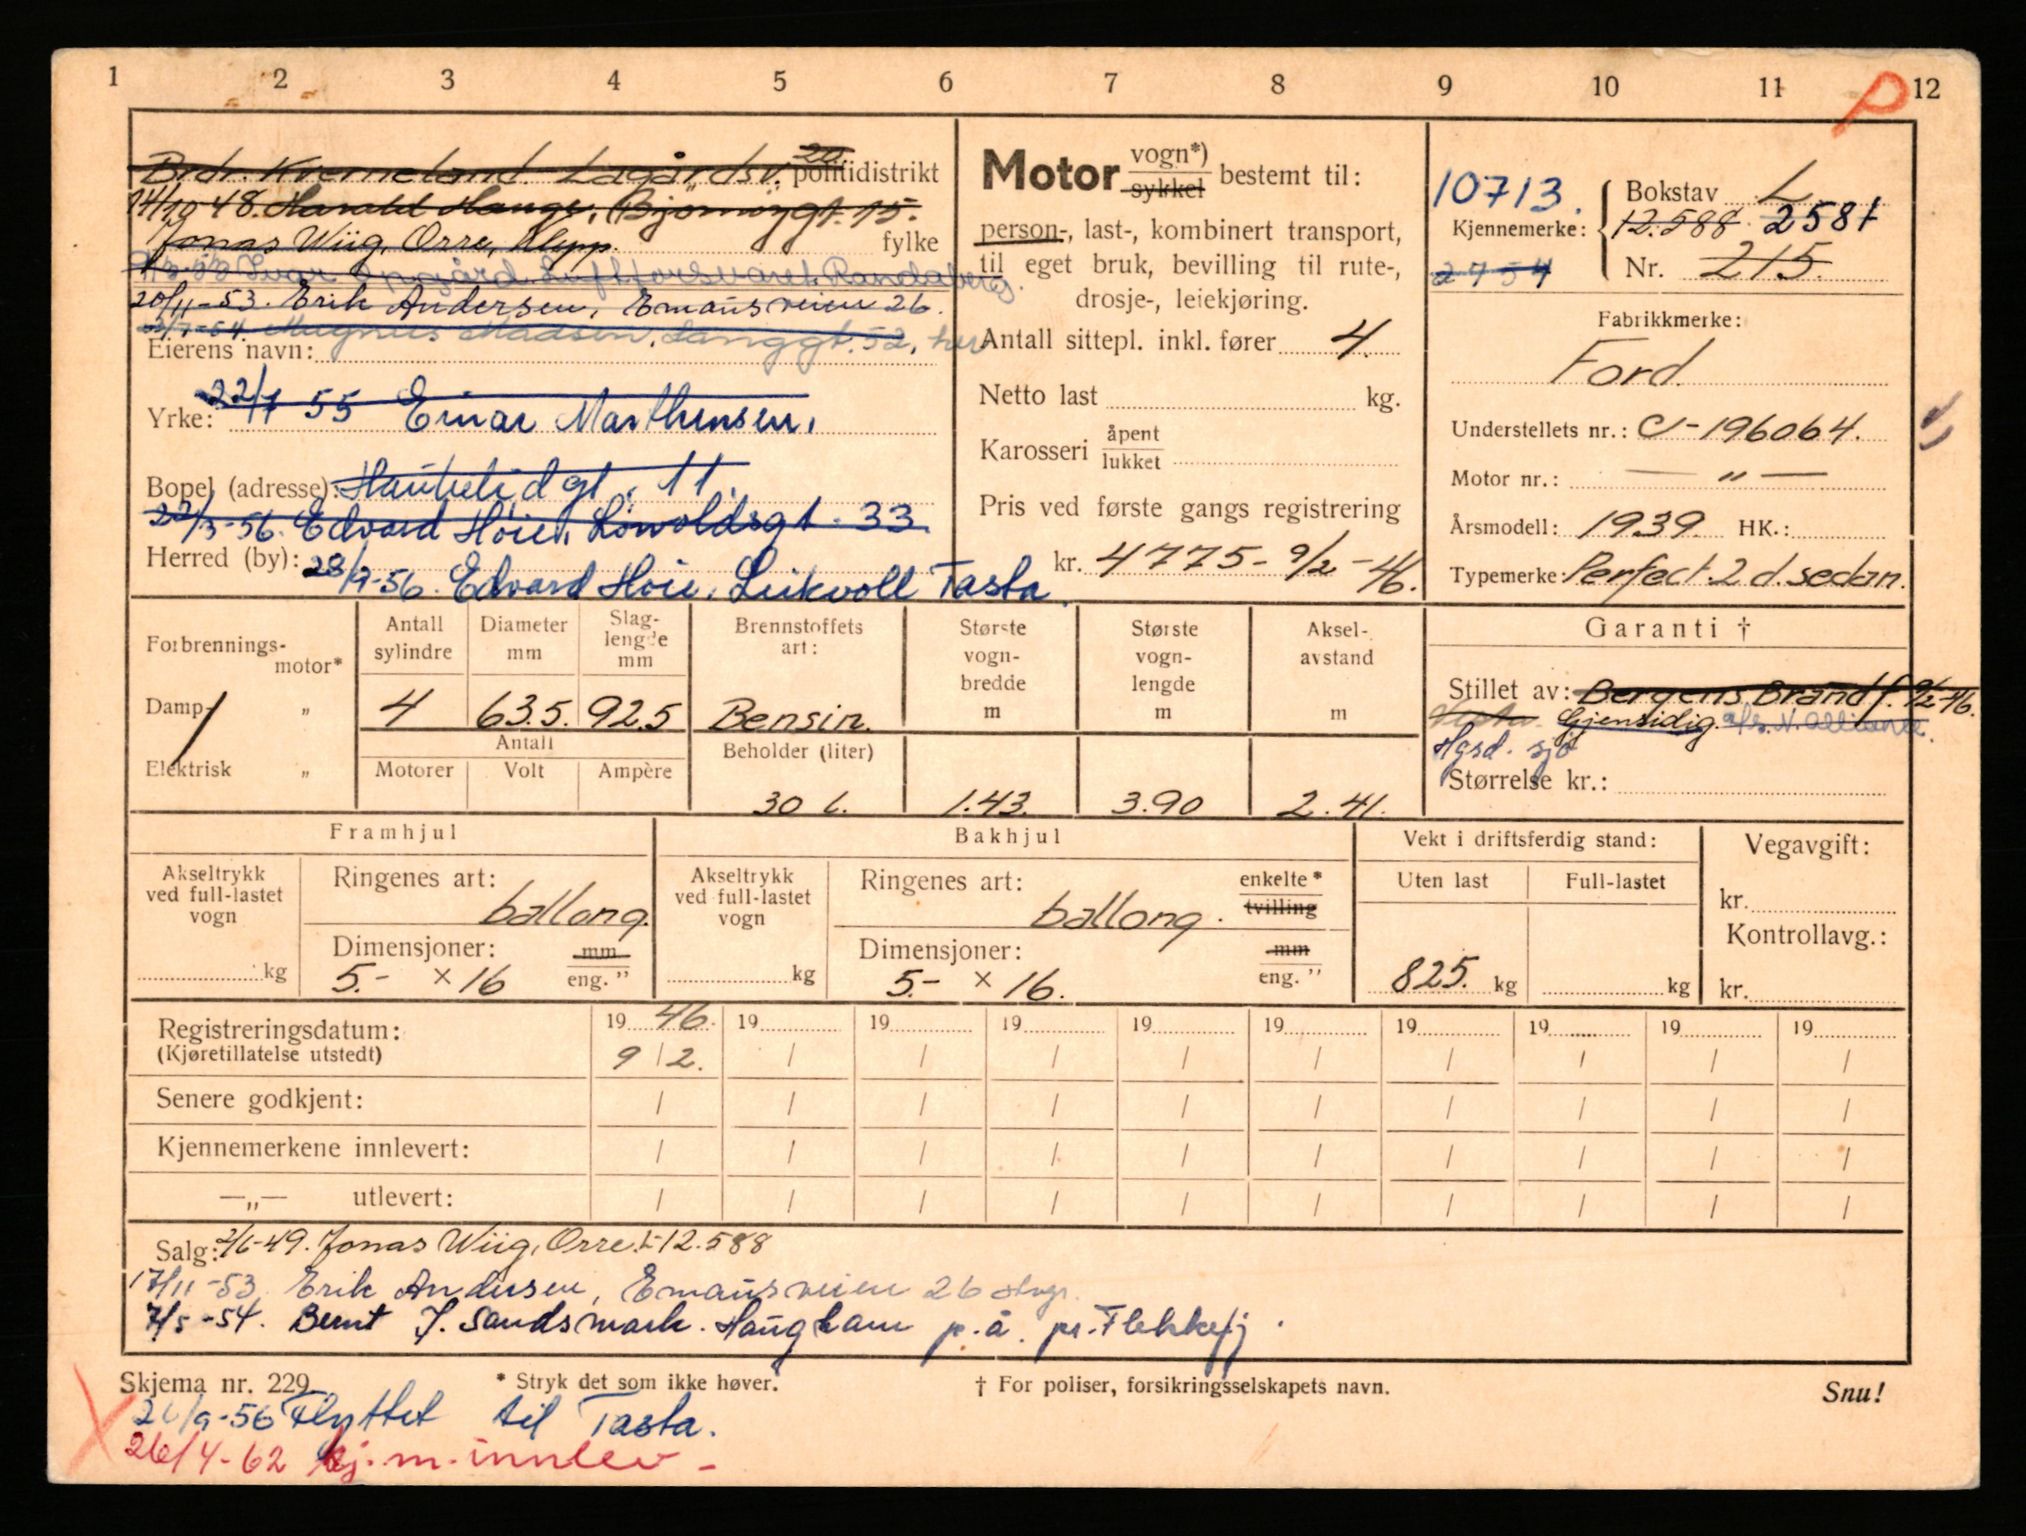 1 2 3 4 5 6 7 8 9 10 11 12
P
Brdr. Kverneland. Lagårdsv. 20 politidistrikt
14/10 48. Harald Hauge, Bjørnøygt. 15.
Jonas Wiig, Orre, Klepp. fylke
Ivar Luftforsvaret Randaberg.
20/11-53. Erik Andersen, Emausveien 26.
Magnus Madsen, Langgt. 52, her
Eierens navn:
Yrke: 22/7 55 Einar Marthinsen,
Bopel (adresse): Haukelidgt. 11.
22/3-56. Edvard Hoie, Løwoldsgt. 33
Herred (by): 28/9-56. Edvard Hoie, Leikvoll Tasta.
Motor vogn*) sykkel bestemt til:
person-, last-, kombinert transport,
til eget bruk, bevilling til rute-,
drosje-, leiekjøring.
Antall sittepl. inkl. fører 4.
Netto last kg.
Karosseri åpent lukket
Pris ved første gangs registrering
kr. 4775.- 9/2-46.
10713. Bokstav L
Kjennemerke: 12.588 2581
2754 Nr. 215.
Fabrikkmerke:
Ford.
Understellets nr.: C-196064.
Motor nr.: — " —
Årsmodell: 1939. HK.:
Typemerke: Perfect 2 d. sedan.
Forbrennings-motor*
Damp- „
Elektrisk „
Antall sylindre 4
Diameter mm 63.5.
Slaglengde mm 92.5
Antall
Motorer Volt Ampère
Brennstoffets art:
Bensin.
Beholder (liter)
30 l.
Største vogn-bredde m
1.43.
Største vogn-lengde m
3.90
Aksel-avstand m
2.41.
Garanti †
Stillet av: Bergens Brand f. 9/2-46.
Vesta Gjensidig. N. Alliance.
Hgsd. sjø
Størrelse kr.:
Framhjul
Akseltrykk ved full-lastet vogn
kg
Ringenes art:
ballong.
Dimensjoner: mm eng. ”
5.- × 16
Bakhjul
Akseltrykk ved full-lastet vogn
kg
Ringenes art: enkelte* tvilling
ballong.
Dimensjoner: mm eng. ”
5.- × 16.
Vekt i driftsferdig stand:
Uten last Full-lastet
825. kg kg
Vegavgift:
kr.
Kontrollavg.:
kr.
Registreringsdatum: 19 46. 19 19 19 19 19 19 19 19 19
(Kjøretillatelse utstedt) 9 / 2. / / / / / / / / /
Senere godkjent: / / / / / / / / / /
Kjennemerkene innlevert: / / / / / / / / / /
—„— utlevert: / / / / / / / / / /
Salg: 2/6-49. Jonas Wiig, Orre. L-12.588
17/11-53 Erik Andersen, Emausveien 26 Stvgr.
7/5-54. Bernt J. Sandsmark. Haugham p.å. pr. Flekkefj.
Skjema nr. 229. * Stryk det som ikke høver. † For poliser, forsikringsselskapets navn. Snu!
X 26/9-56 Flyttet til Tasta.
26/4-62 kj.m. innlev-